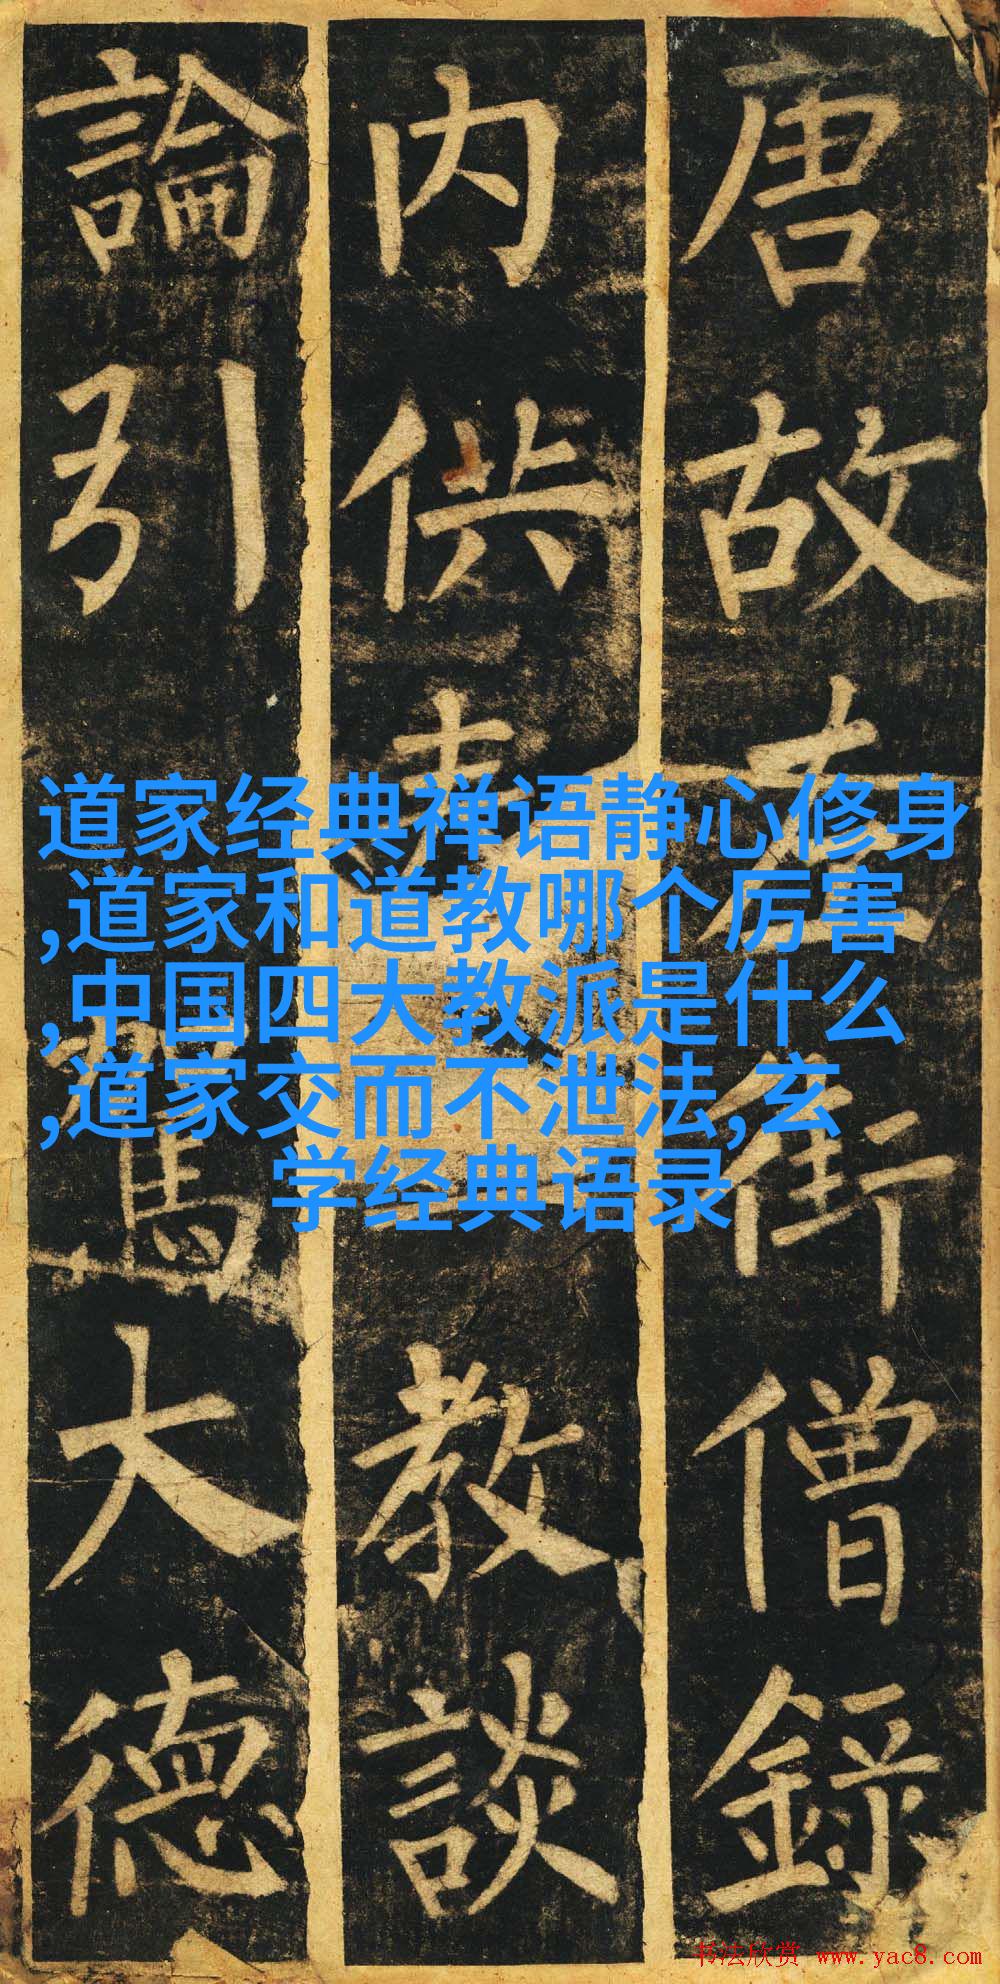 唐故左街僧錄
内供奉教談
論引駕大德
道家经典禅语静心修身
,道家和道教哪个厉害
,中国四大教派是什么
,道家交而不泄法,玄
学经典语录
书法欣赏 www.yac8.com